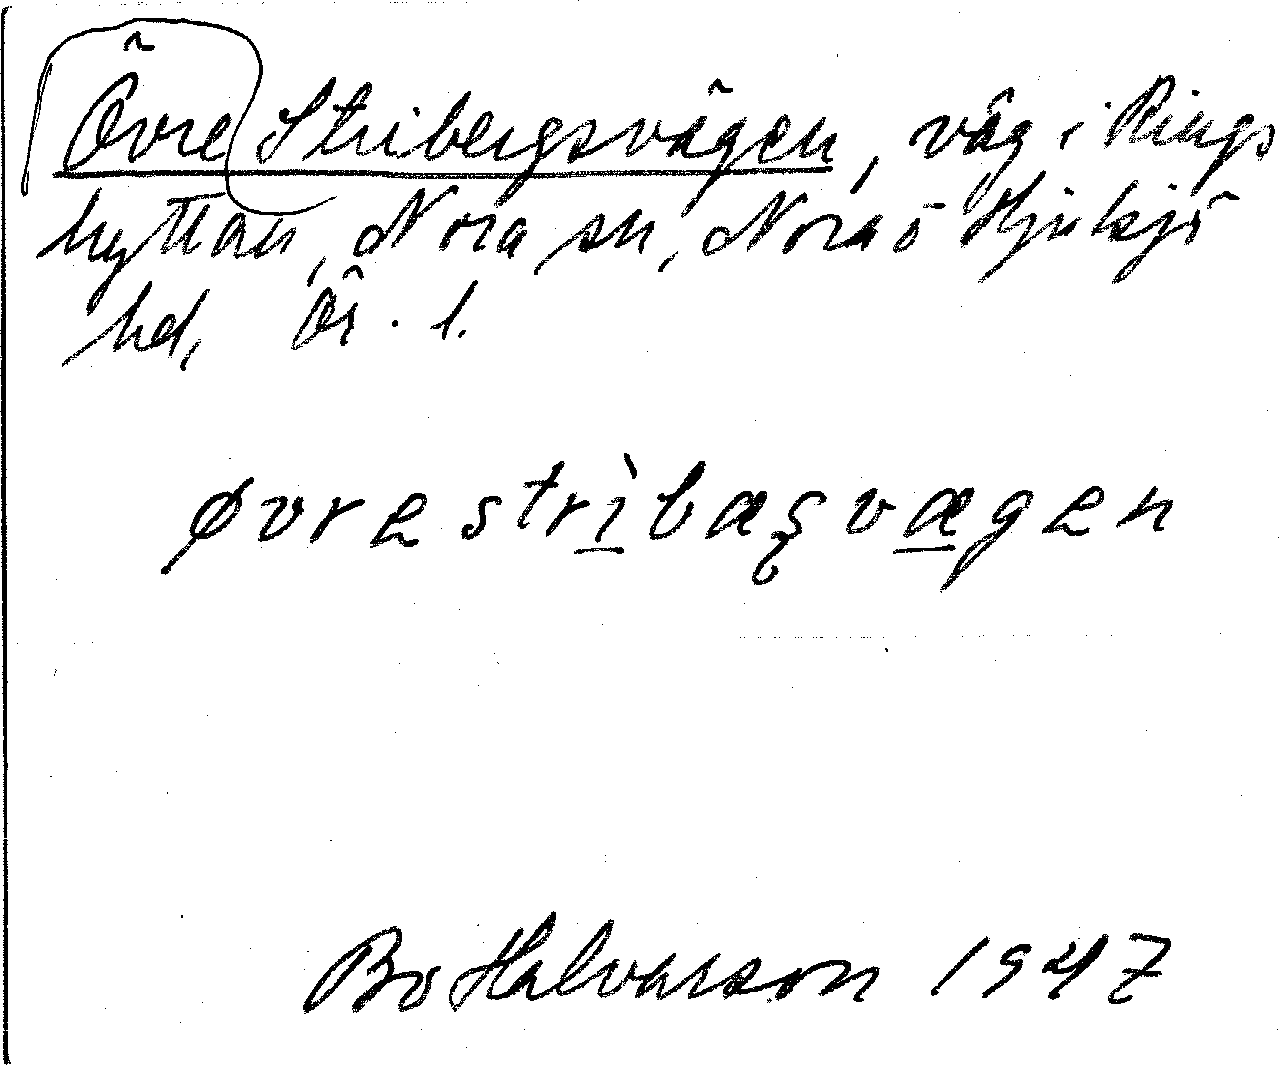 Övre Stribergsvägen, väg i Rings
hyttan, Nora sn, Nora o Hjulsjö
hd, Ör. l.
øvre strìbæʂvægen
Bo Halvarson 1947